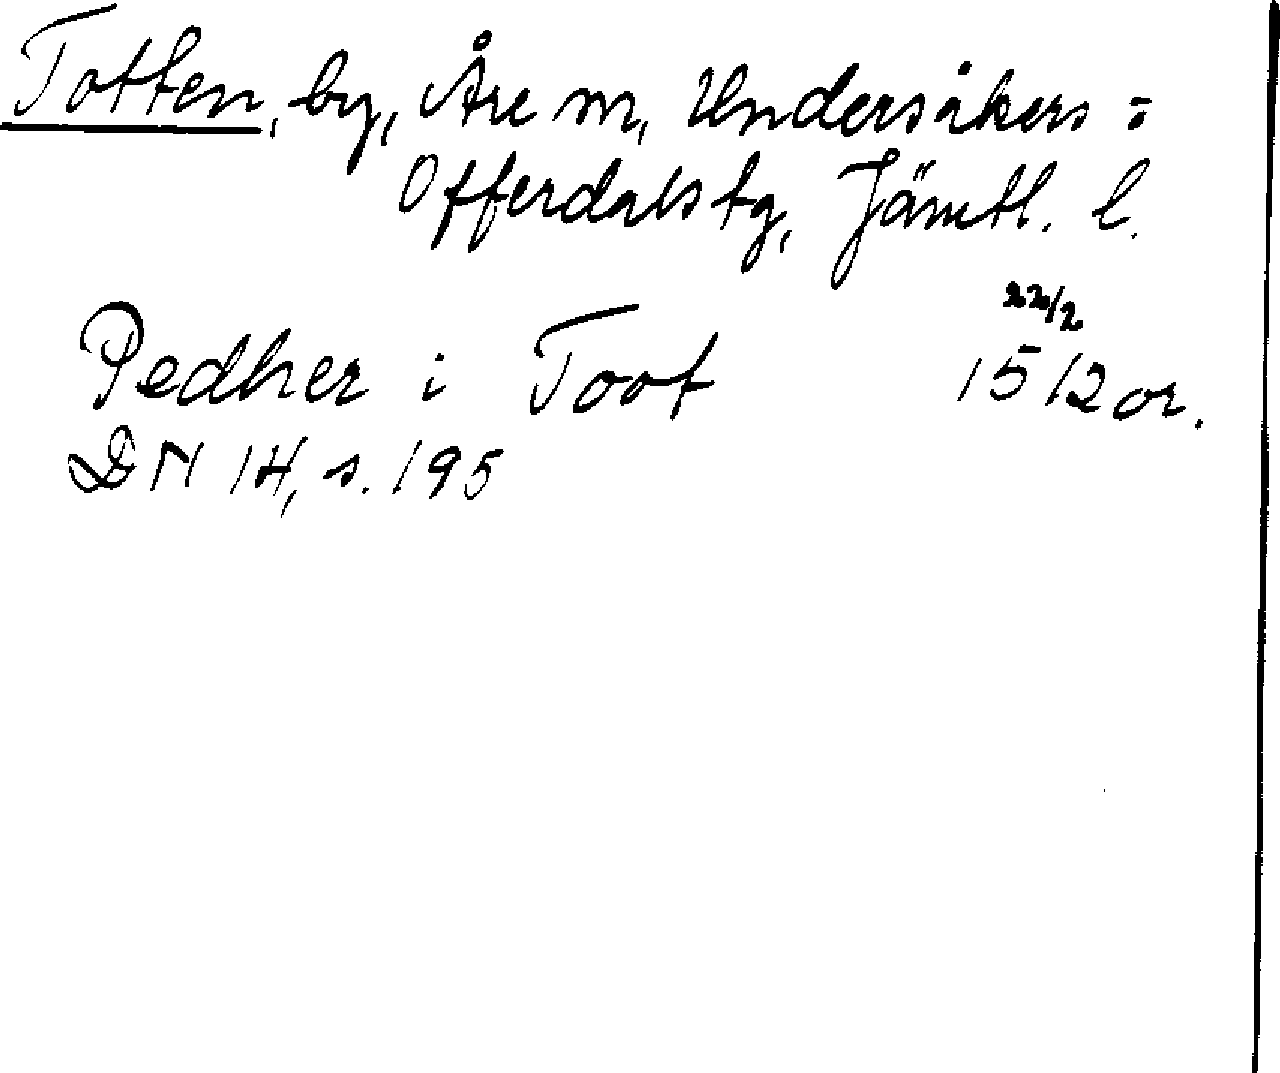 Totten, by, Åre m, Undersåkers =
Offerdals tg, Jämtl. l.
22/2
Pedher i Toot 1512 or.
DN 14, s. 195